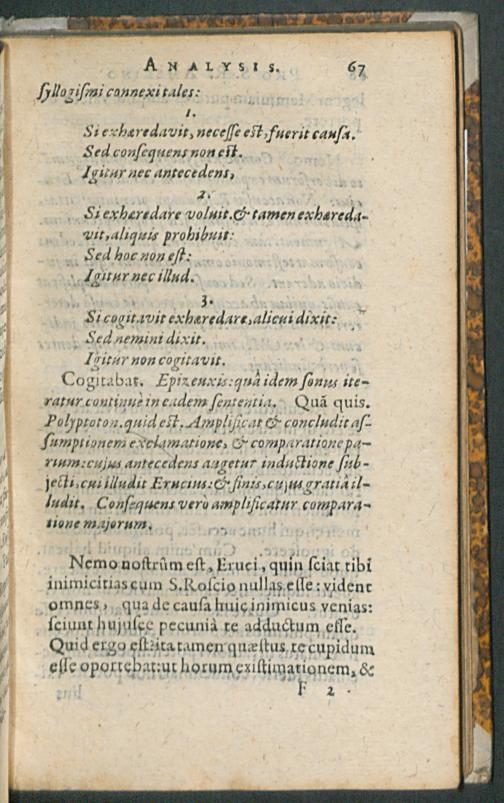 ANALYSIS. 67
syllogismi connexi tales:
1.
Si exhæredavit, necesse est, fuerit causa.
Sed consequens non est.
Igitur nec antecedens,
2.
Si exhæredare voluit & tamen exhæreda-
vit, aliquis prohibuit:
Sed hoc non est:
Igitur nec illud.
3.
Si cogitavit exhæredare, alicui dixit:
Sed nemini dixit.
Igitur non cogitavit.
Cogitabat. Epizeuxis: quâ idem sonus ite-
ratur continuè in eadem sententia. Quâ quis.
Polyptoton. quid est. Amplificat & concludit as-
sumptionem exclamatione, & comparatione pa-
rium: cujus antecedens augetur inductione sub-
jecti, cui illudit Erucius: & finis, cujus gratia il-
ludit. Consequens verò amplificatur compara-
tione majorum.
Nemo nostrûm est, Eruci, quin sciat tibi
inimicitias cum S. Roscio nullas esse: vident
omnes, qua de causa huic inimicus venias:
sciunt hujusce pecuniâ te adductum esse.
Quid ergo est? ita tamen quæstus te cupidum
esse oportebat: ut horum existimationem, &
F 2